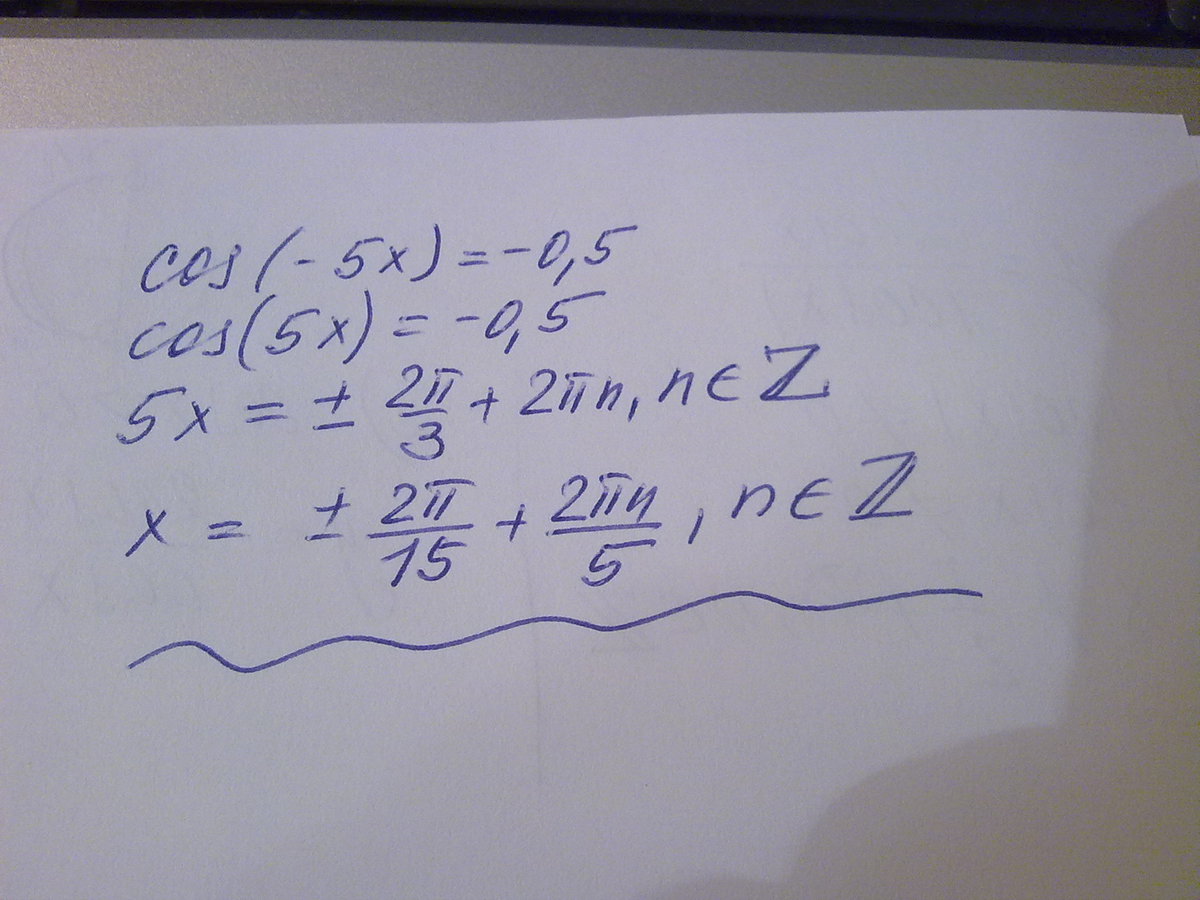 cos(-5x) = -0,5
cos(5x) = -0,5
5x = ± 2π/3 + 2πn, n ∈ ℤ
x = ± 2π/15 + 2πn/5, n ∈ ℤ